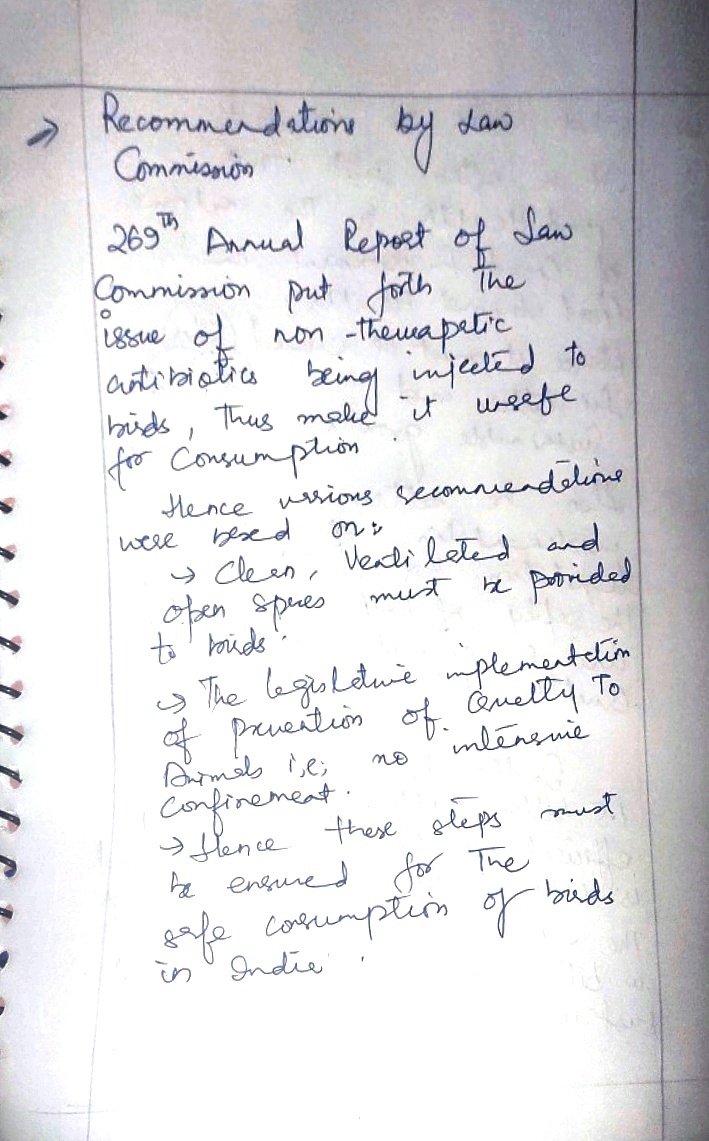 → Recommendations by Law
Commission
269th Annual Report of Law
Commission put forth the
issue of non-therapetic
antibiotics being injected to
birds, thus make it unsafe
for Consumption.
Hence various recommendations
were based on:
→ Clean, Ventilated and
open spaces must be provided
to birds.
→ The legislative implementation
of prevention of Cruelty To
Animals i,e; no intensive
confinement.
→ Hence these steps must
be ensured for The
safe consumption of birds
in India.